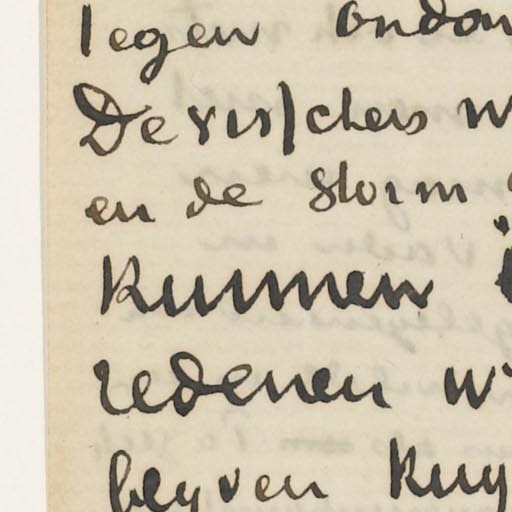 legen ondan
De visschers w
en de storm
Kunnen
redenen w
blyven Kuy